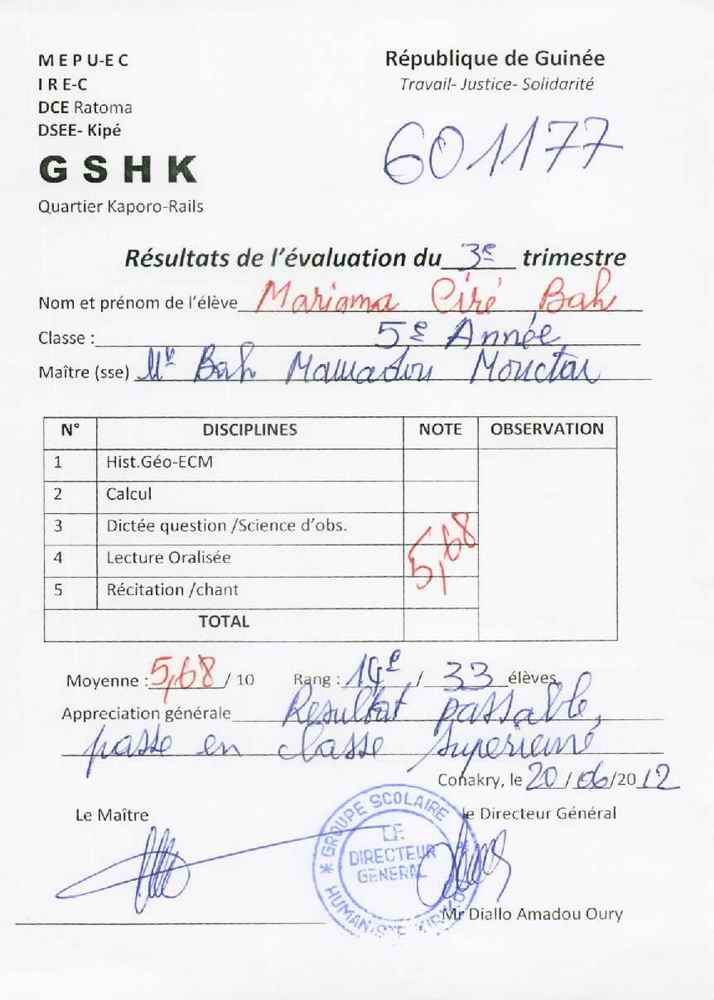 M E P U-E C
République de Guinée
I R E-C
Travail- Justice- Solidarité
DCE Ratoma
DSEE- Kipé
601177
G S H K
Quartier Kaporo-Rails
Résultats de l'évaluation du 3e trimestre
Nom et prénom de l'élève Mariama Ciré Bah
Classe : 5e Année
Maître (sse) Mr Bah Mamadou Mouctar
N° DISCIPLINES NOTE OBSERVATION
1 Hist.Géo-ECM
2 Calcul
3 Dictée question /Science d'obs.
4 Lecture Oralisée
5 Récitation /chant
5,68
TOTAL
Moyenne : 5,68 / 10 Rang : 14e / 33 élèves
Appreciation générale Resultat passable,
passe en classe superieure
Conakry, le 20 / 06/20 12
Le Maître
le Directeur Général
GROUPE SCOLAIRE
LE
DIRECTEUR
GENERAL
HUMANISTE
Mr Diallo Amadou Oury